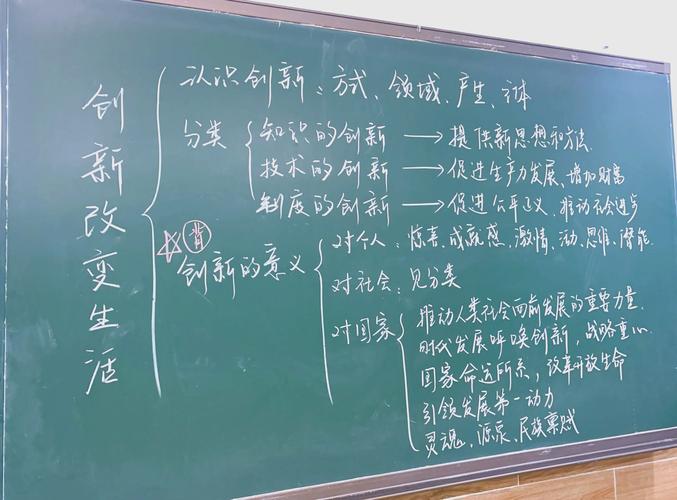 创新改变生活
认识创新：方式、领域、产生、主体
分类
知识的创新 → 提供新思想和方法
技术的创新 → 促进生产力发展、增加财富
制度的创新 → 促进公平正义、推动社会进步
背
创新的意义
对个人：惊喜、成就感、激情、动、思维、潜能
对社会：见分类
对国家
推动人类社会向前发展的重要力量
时代发展呼唤创新，战略重心
国家命运所系，改革开放生命
引领发展第一动力
灵魂、源泉、民族禀赋